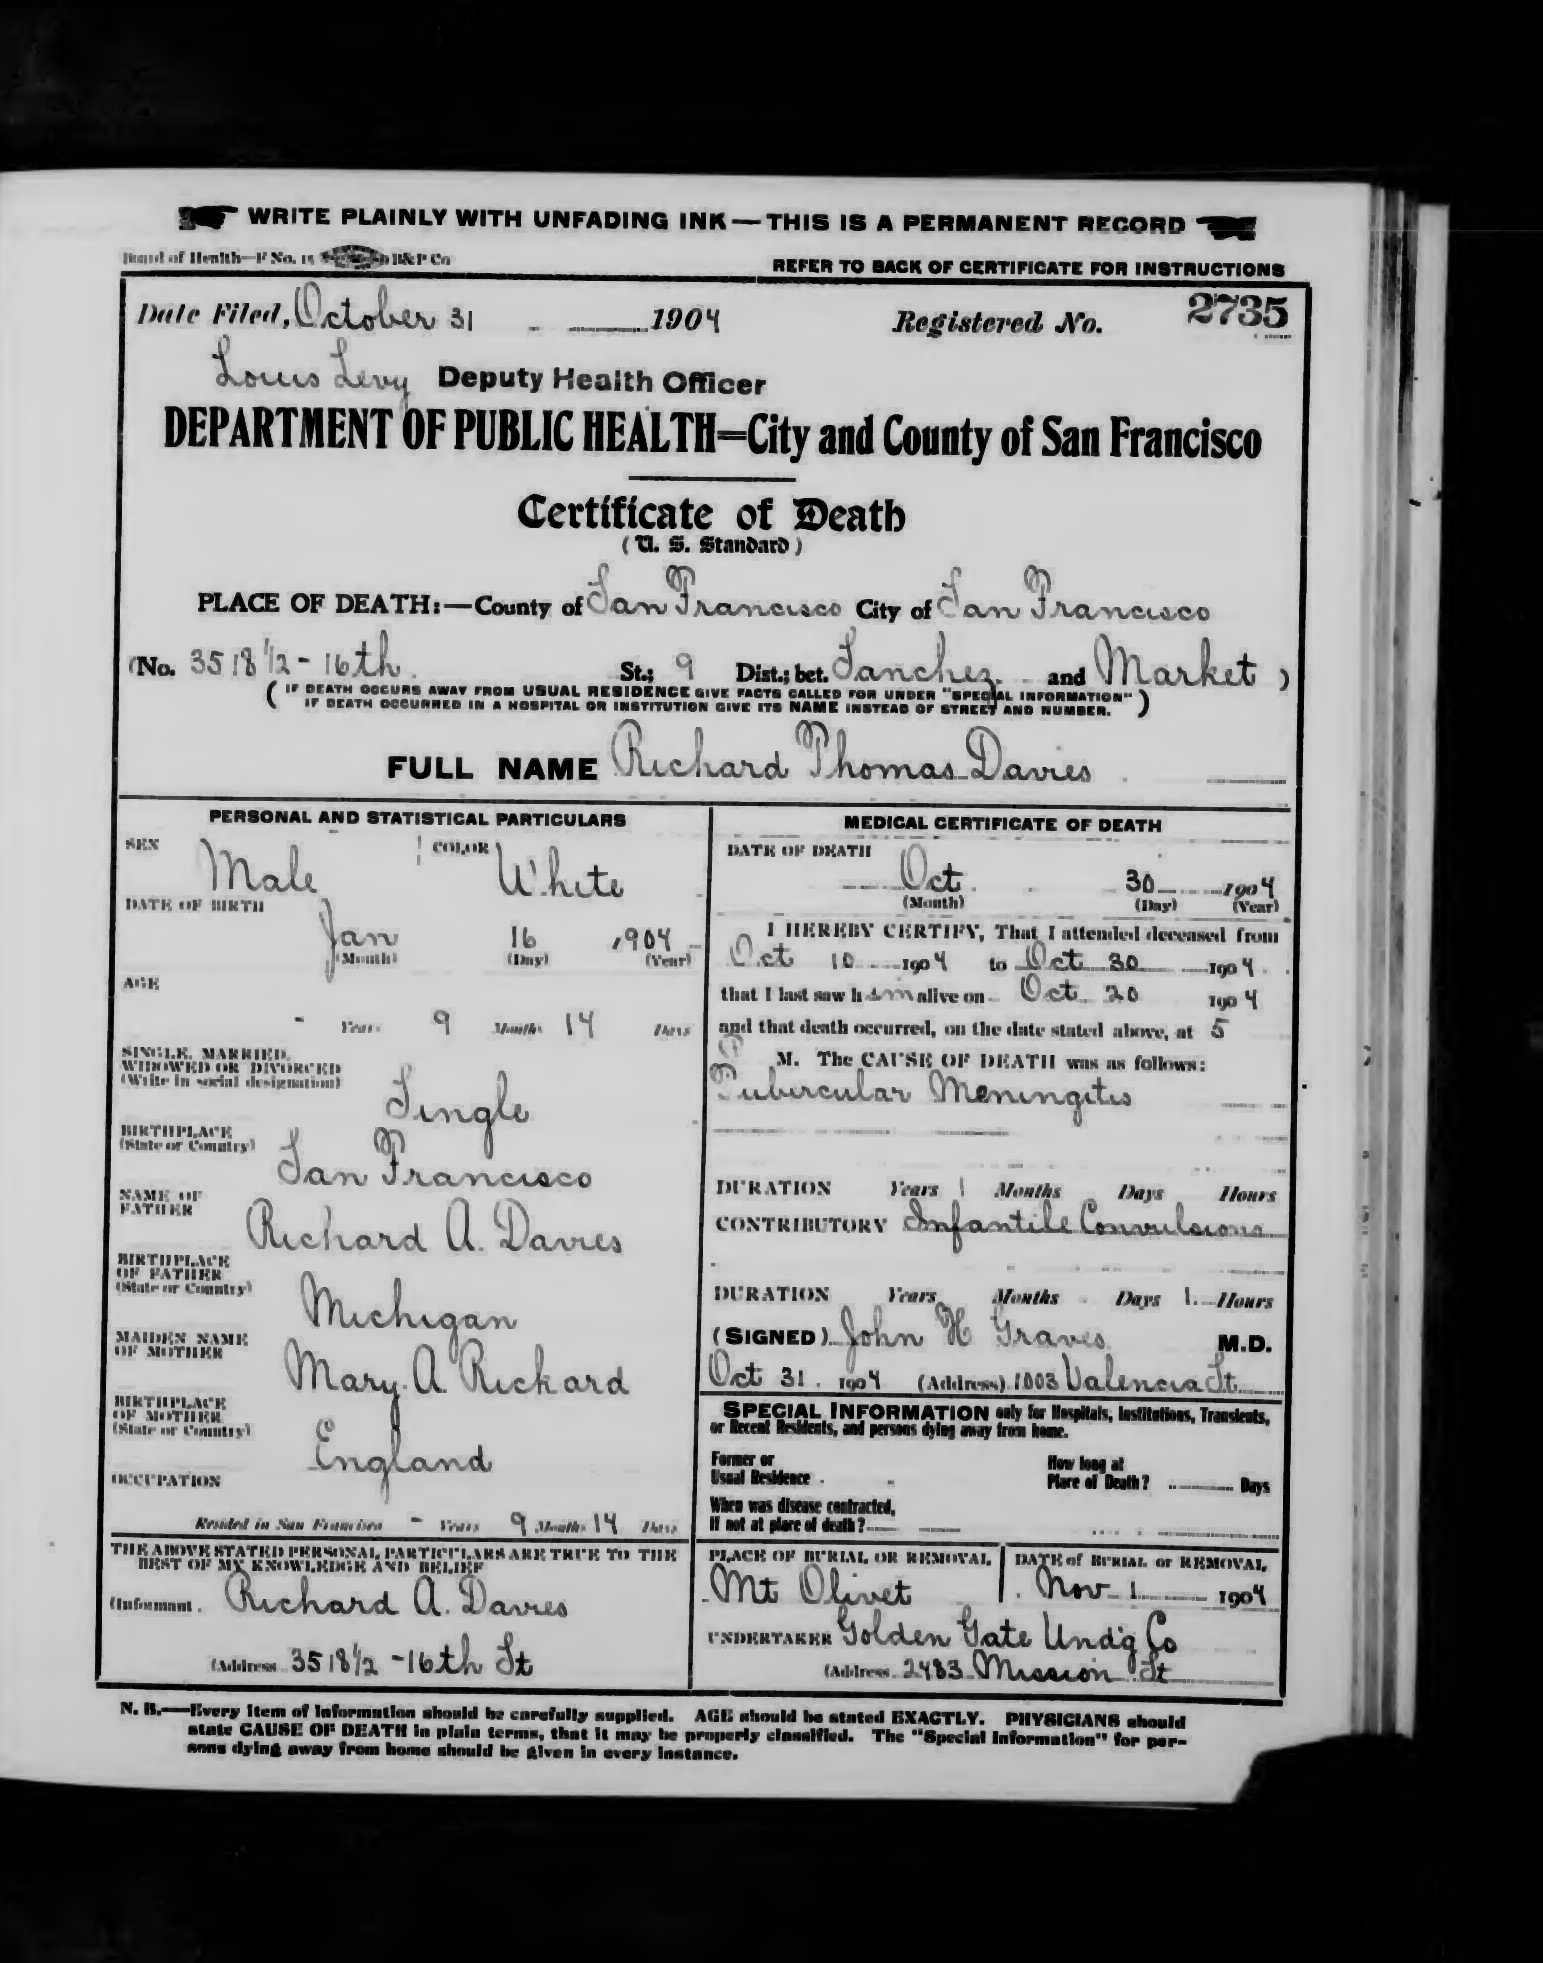 WRITE PLAINLY WITH UNFADING INK—THIS IS A PERMANENT RECORD
Board of Health—F No. 15 B&P Co
REFER TO BACK OF CERTIFICATE FOR INSTRUCTIONS
Date Filed, October 31 1904 Registered No. 2735
Louis Levy Deputy Health Officer
DEPARTMENT OF PUBLIC HEALTH=City and County of San Francisco
Certificate of Death
(U. S. Standard)
PLACE OF DEATH:—County of San Francisco City of San Francisco
(No. 3518 1/2 - 16th St.; 9 Dist.; bet. Sanchez and Market)
(IF DEATH OCCURS AWAY FROM USUAL RESIDENCE GIVE FACTS CALLED FOR UNDER "SPECIAL INFORMATION"
IF DEATH OCCURRED IN A HOSPITAL OR INSTITUTION GIVE ITS NAME INSTEAD OF STREET AND NUMBER.)
FULL NAME Richard Thomas Davies
PERSONAL AND STATISTICAL PARTICULARS
SEX Male COLOR White
DATE OF BIRTH
Jan 16 1904
(Month) (Day) (Year)
AGE
- Years 9 Months 14 Days
SINGLE, MARRIED,
WIDOWED OR DIVORCED
(Write in social designation)
Single
BIRTHPLACE
(State or Country)
San Francisco
NAME OF
FATHER
Richard A. Davies
BIRTHPLACE
OF FATHER
(State or Country)
Michigan
MAIDEN NAME
OF MOTHER
Mary A. Rickard
BIRTHPLACE
OF MOTHER
(State or Country)
England
OCCUPATION
Resided in San Francisco - Years 9 Months 14 Days
THE ABOVE STATED PERSONAL PARTICULARS ARE TRUE TO THE
BEST OF MY KNOWLEDGE AND BELIEF
(Informant Richard A. Davies
(Address 3518 1/2 - 16th St
MEDICAL CERTIFICATE OF DEATH
DATE OF DEATH
Oct 30 1904
(Month) (Day) (Year)
I HEREBY CERTIFY, That I attended deceased from
Oct 10 1904 to Oct 30 1904
that I last saw him alive on Oct 20 1904
and that death occurred, on the date stated above, at 5
P M. The CAUSE OF DEATH was as follows:
Tubercular Meningitis
DURATION Years 1 Months Days Hours
CONTRIBUTORY Infantile Convulsions
DURATION Years Months Days 1 Hours
(SIGNED) John H Graves M.D.
Oct 31 1904 (Address) 1003 Valencia St
SPECIAL INFORMATION only for Hospitals, Institutions, Transients,
or Recent Residents, and persons dying away from home.
Former or
Usual Residence
How long at
Place of Death? Days
When was disease contracted,
If not at place of death?
PLACE OF BURIAL OR REMOVAL
Mt Olivet
DATE of BURIAL or REMOVAL
Nov 1 1904
UNDERTAKER Golden Gate Und'g Co
(Address 2483 Mission St
N. B.—Every item of information should be carefully supplied. AGE should be stated EXACTLY. PHYSICIANS should
state CAUSE OF DEATH in plain terms, that it may be properly classified. The "Special Information" for per-
sons dying away from home should be given in every instance.